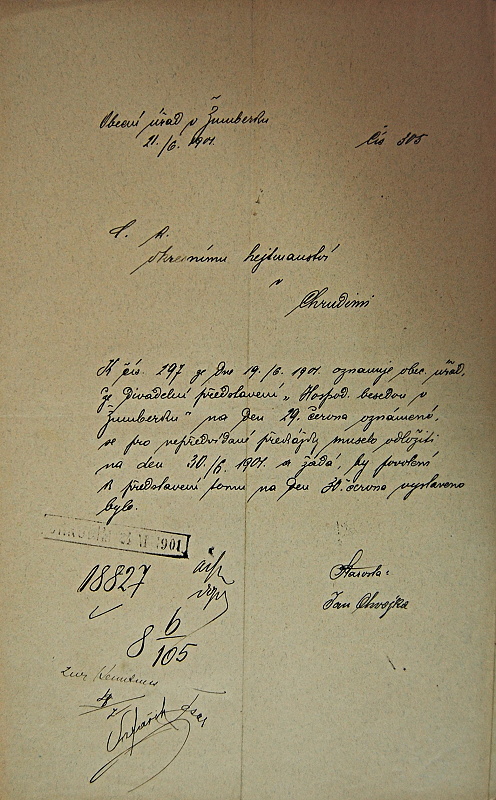 Obecní úřad v Žumberku
21./6. 1901.
Čís 305
C. K.
okresnímu hejtmanství
v
Chrudimi
K čís. 297 ze dne 19./6. 1901. oznamuje obec. úřad,
že divadelní představení „Hospod. besedou v
Žumberku" na den 29. června oznámené,
se pro nepředvídané překážky muselo odložiti
na den 30./6. 1901. a žádá, by povolení
k představení tomu na den 30. června vystaveno
bylo.
CHRUDIM 1901
18827
8 6/105
Starosta:
Jan Chvojka
zur Kenntnis